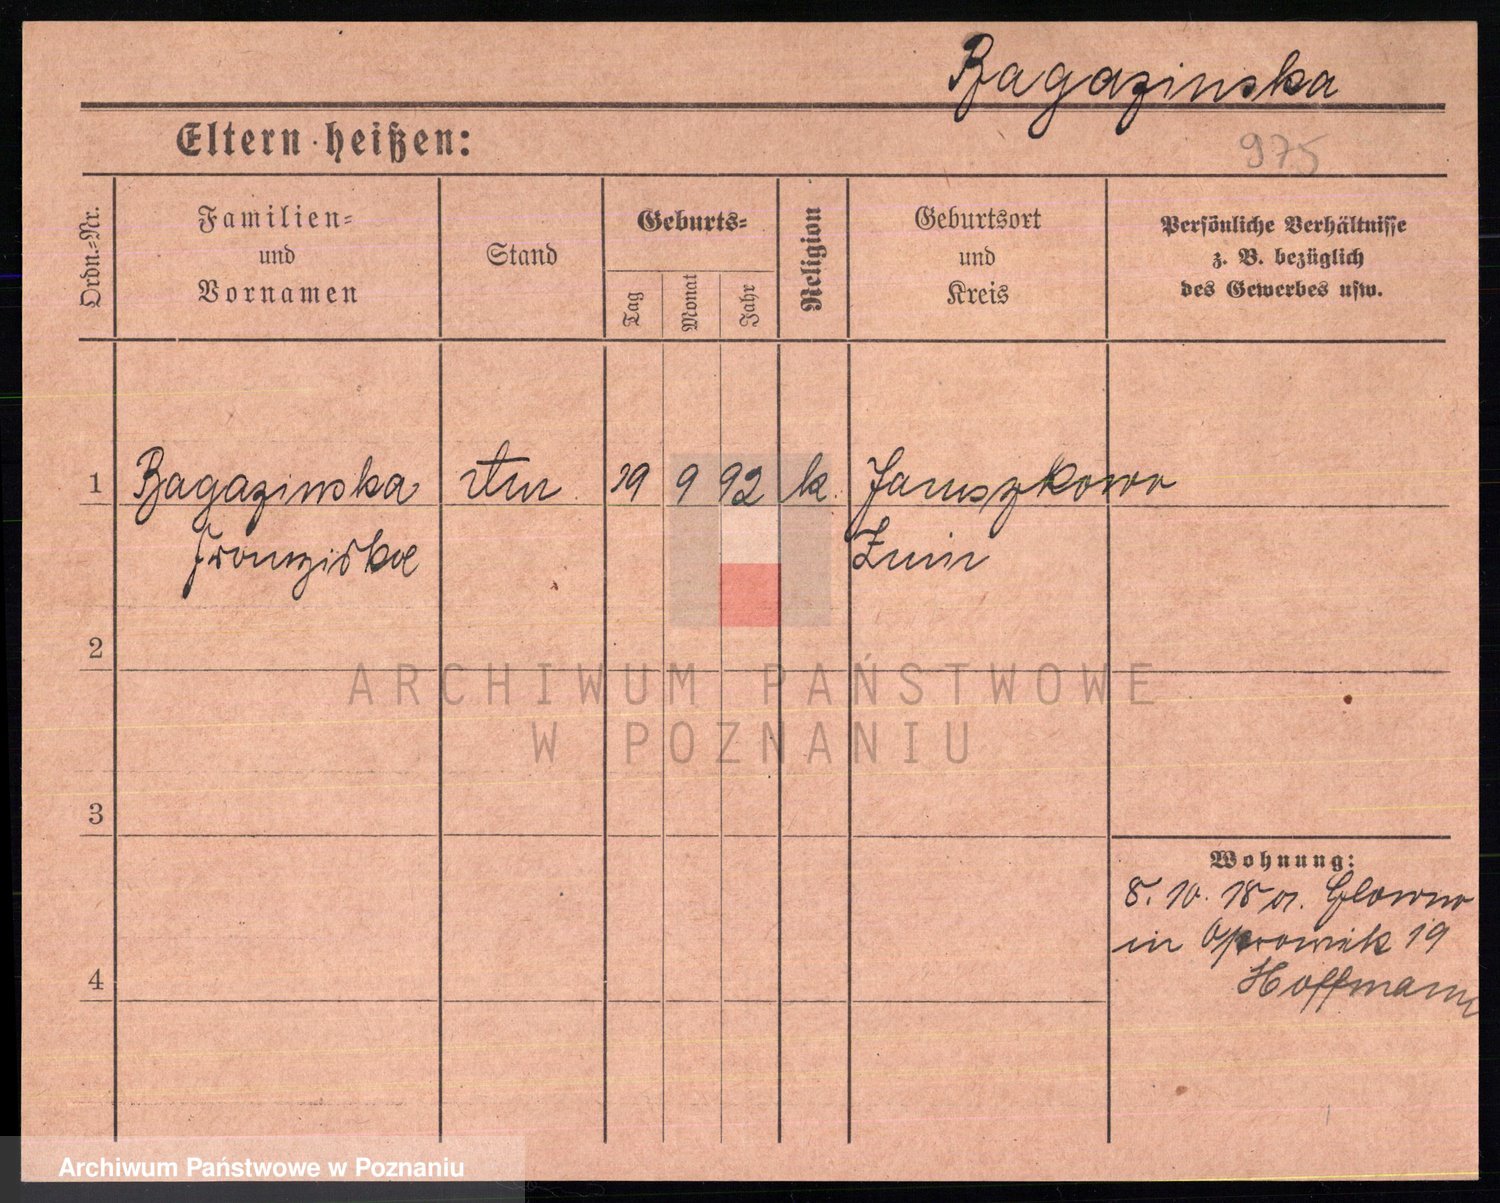 Bagazinska
Eltern heißen:
975
Ordn.=Nr.
Familien=
und
Vornamen
Stand
Geburts=
Tag
Monat
Jahr
Religion
Geburtsort
und
Kreis
Persönliche Verhältnisse
z. B. bezüglich
des Gewerbes usw.
1 Bagazinska 19 9 92 k. Januszkowo
Franziska Znin
2
ARCHIWUM PAŃSTWOWE
W POZNANIU
3
Wohnung:
8. 10. 18 a. Glowno
in 19
4
Hoffmann
Archiwum Państwowe w Poznaniu